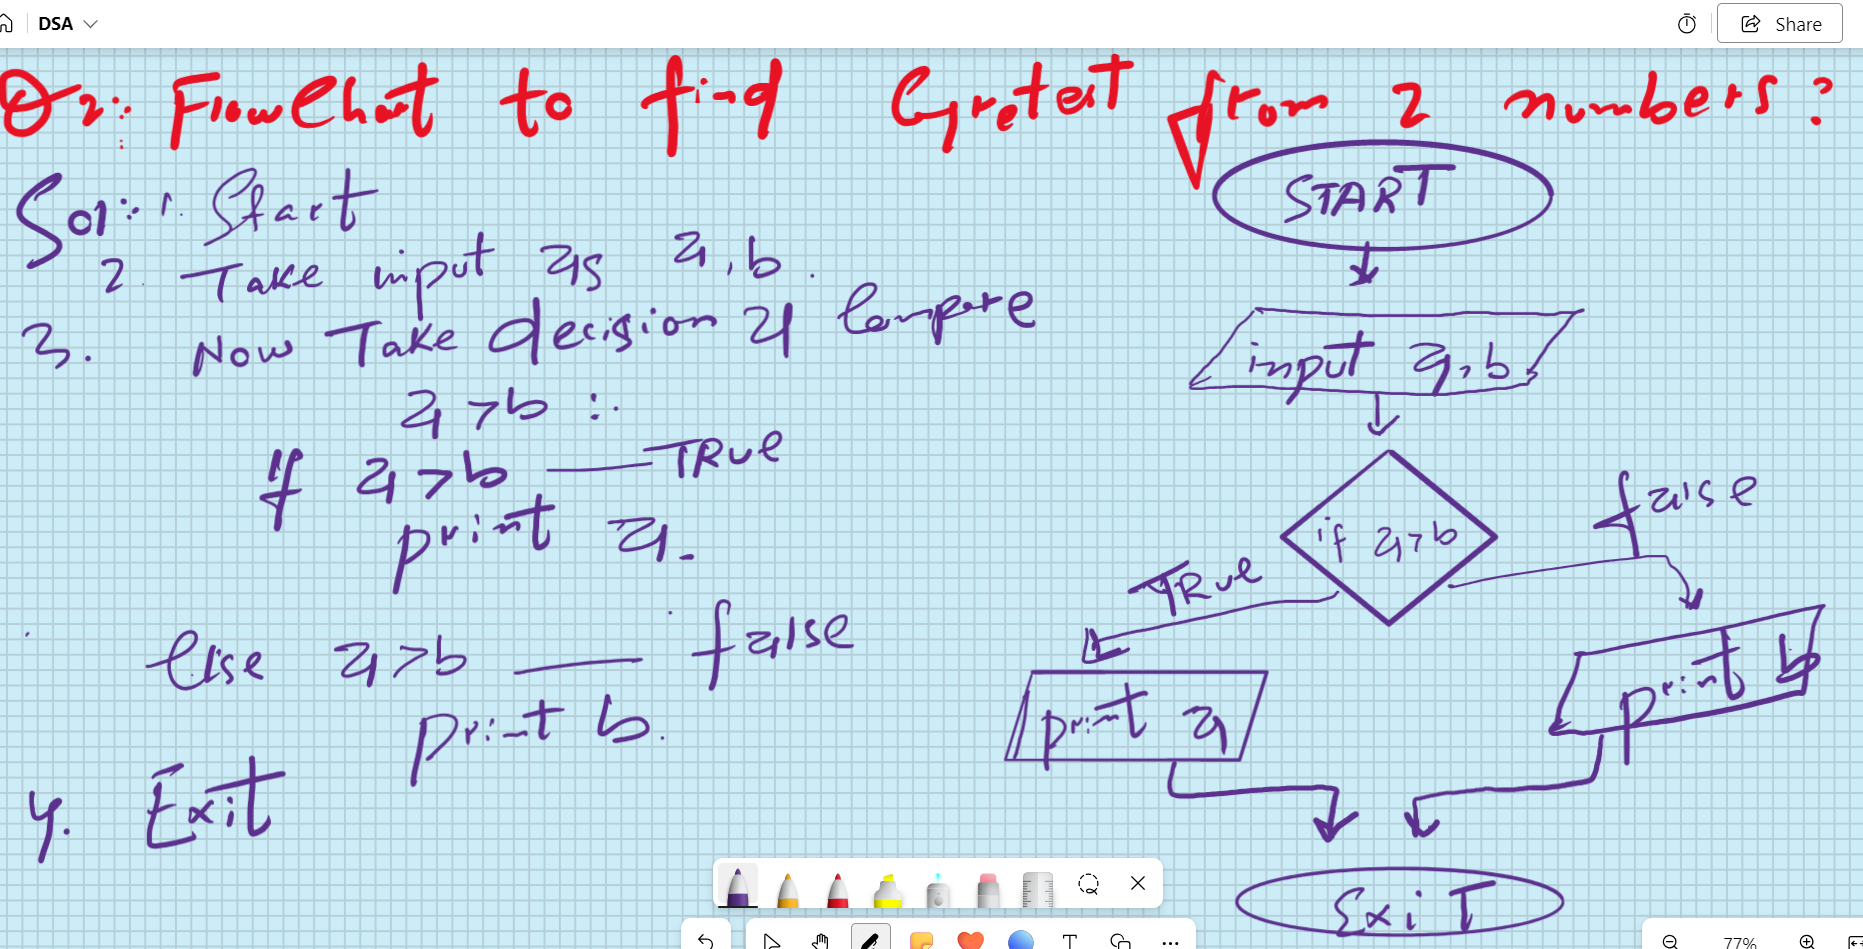 DSA
Share
Q2: Flowchart to find Gretest from 2 numbers?
Sol: 1. Start
2. Take input as a, b.
3. Now Take decision & Compare
a > b :
If a > b — TRUE
print a.
Else a > b — false
print b.
4. Exit
START
input a, b
if a > b
TRUE
false
print a
print b
EXIT
77%